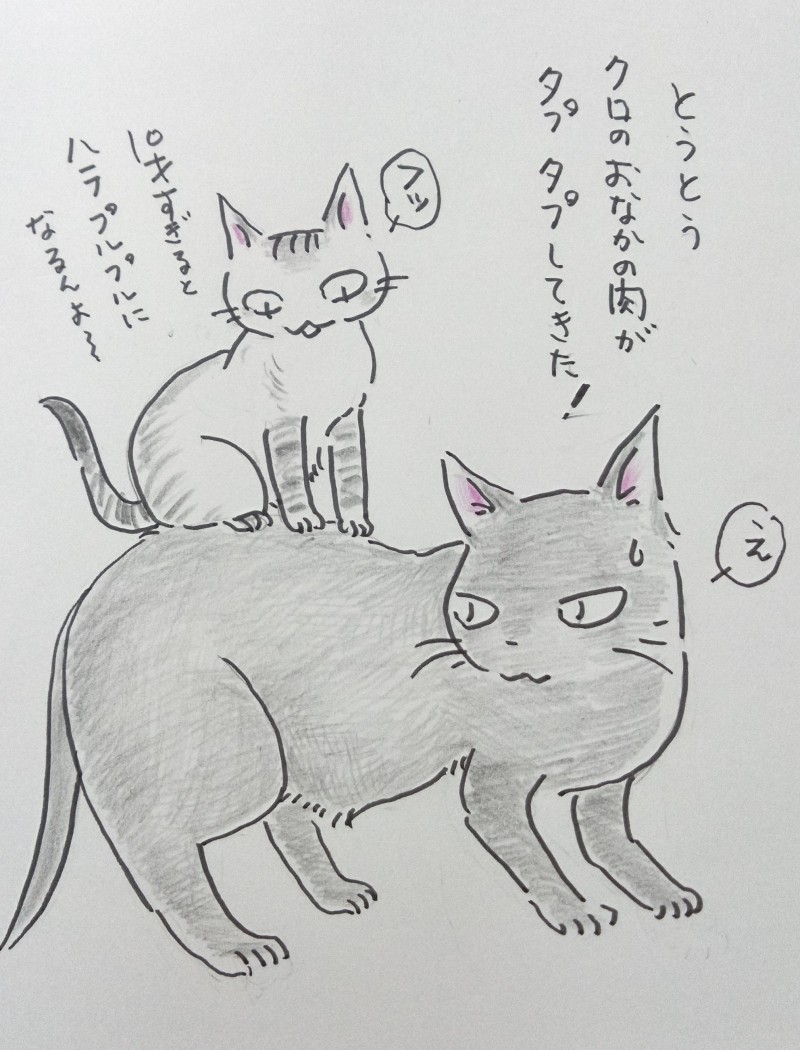 とうとう
クロのおなかの肉が
タプタプしてきた!
え
フッ
すぎると
ハラプルプルに
なるんよ~